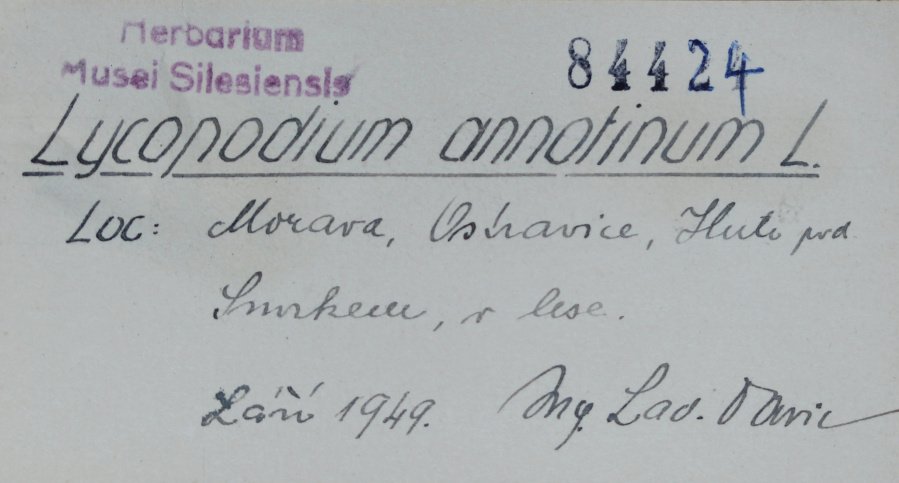 Herbarium
Musei Silesiensis
84424
Lycopodium annotinum L.
Loc: Morava, Ostravice, Hutě pod
Smrkem, v lese.
Září 1949. Ing. Lad.